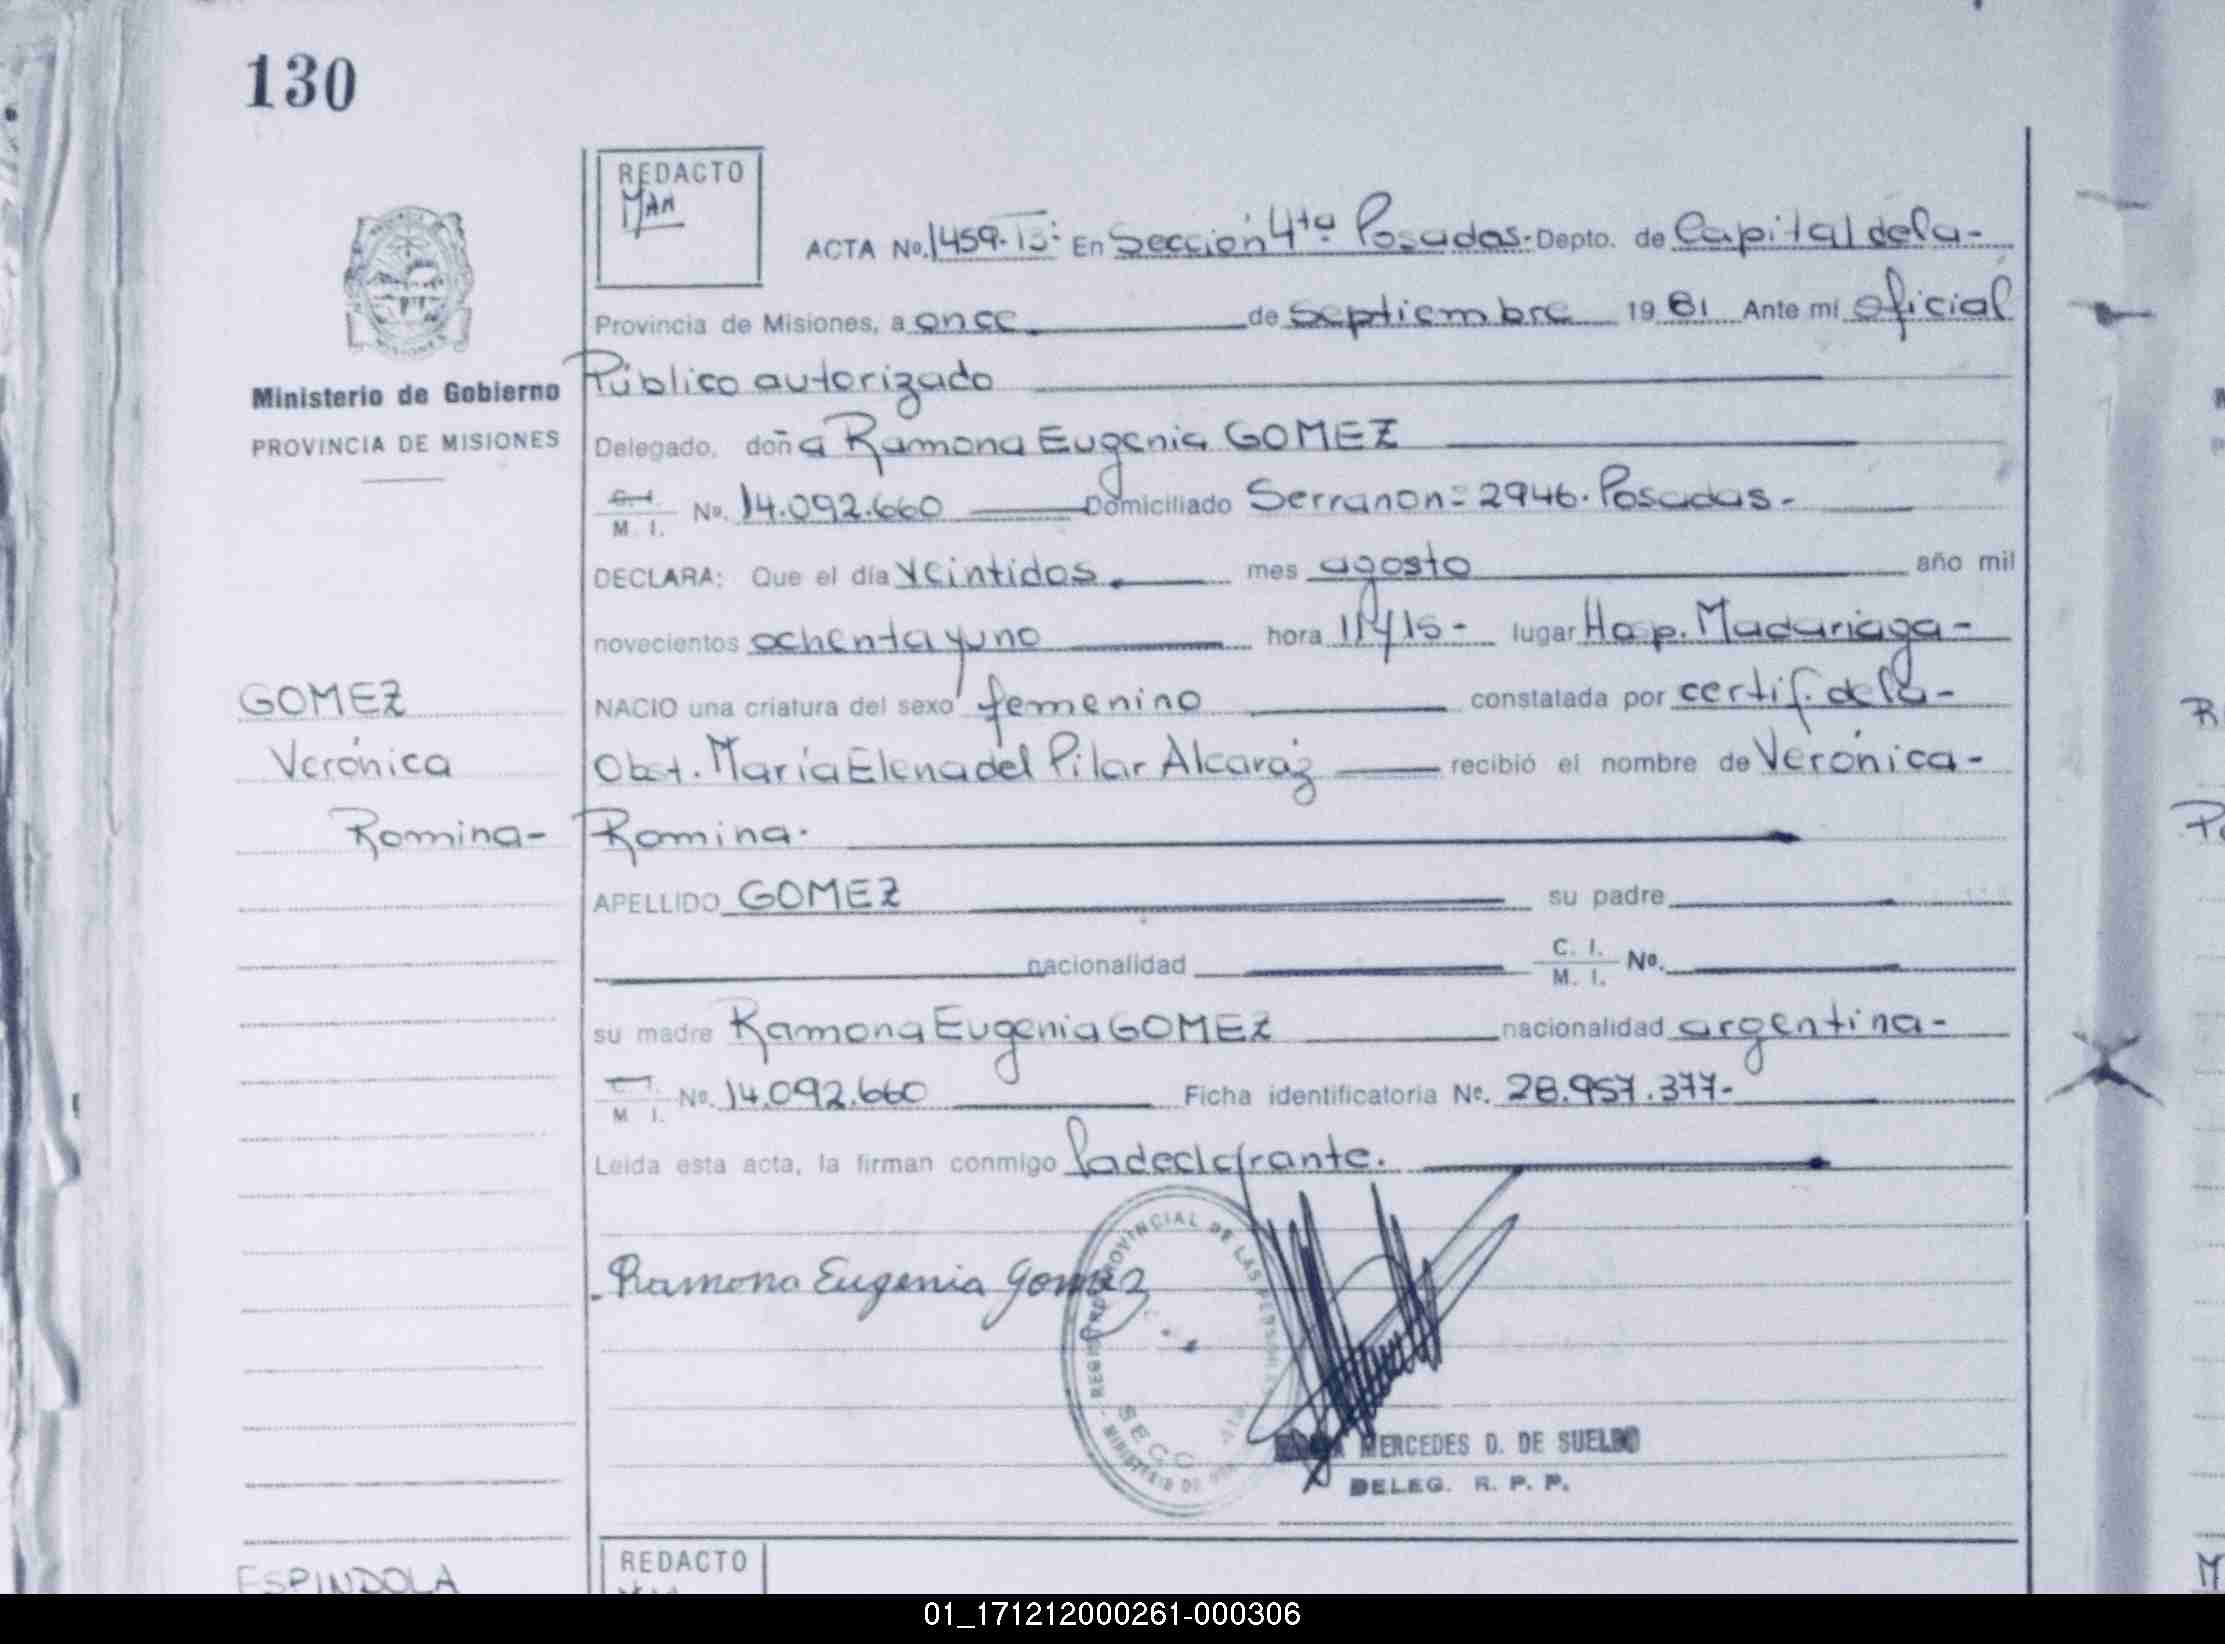 130
REDACTO
MAA
ACTA No. 1459-T3- En Sección 4ta Posadas. Depto. de Capital de la-
Provincia de Misiones, a once. de septiembre 19 81 Ante mí oficial
Público autorizado
Ministerio de Gobierno
PROVINCIA DE MISIONES
Delegado, doña Ramona Eugenia GOMEZ
C. I. M. I. No. 14.092.660 Domiciliado Serrano n= 2946. Posadas.-
DECLARA: Que el día veintidos. mes agosto año mil
novecientos ochenta y uno hora 11/15- lugar Hosp. Madariaga-
GOMEZ
NACIO una criatura del sexo femenino constatada por certif. de la-
Verónica
Obst. María Elena del Pilar Alcaráz recibió el nombre de Verónica-
Romina-
Romina.
APELLIDO GOMEZ su padre
nacionalidad C. I. M. I. No.
su madre Ramona Eugenia GOMEZ nacionalidad argentina-
C. I. M. I. No. 14.092.660 Ficha identificatoria No. 28.957.377-
Leída esta acta, la firman conmigo la declarante.
Ramona Eugenia Gomez
REGISTRO PROVINCIAL DE LAS PERSONAS
SECC
MINISTERIO DE
MERCEDES D. DE SUELDO
DELEG. R. P. P.
ESPINDOLA
REDACTO
01_171212000261-000306